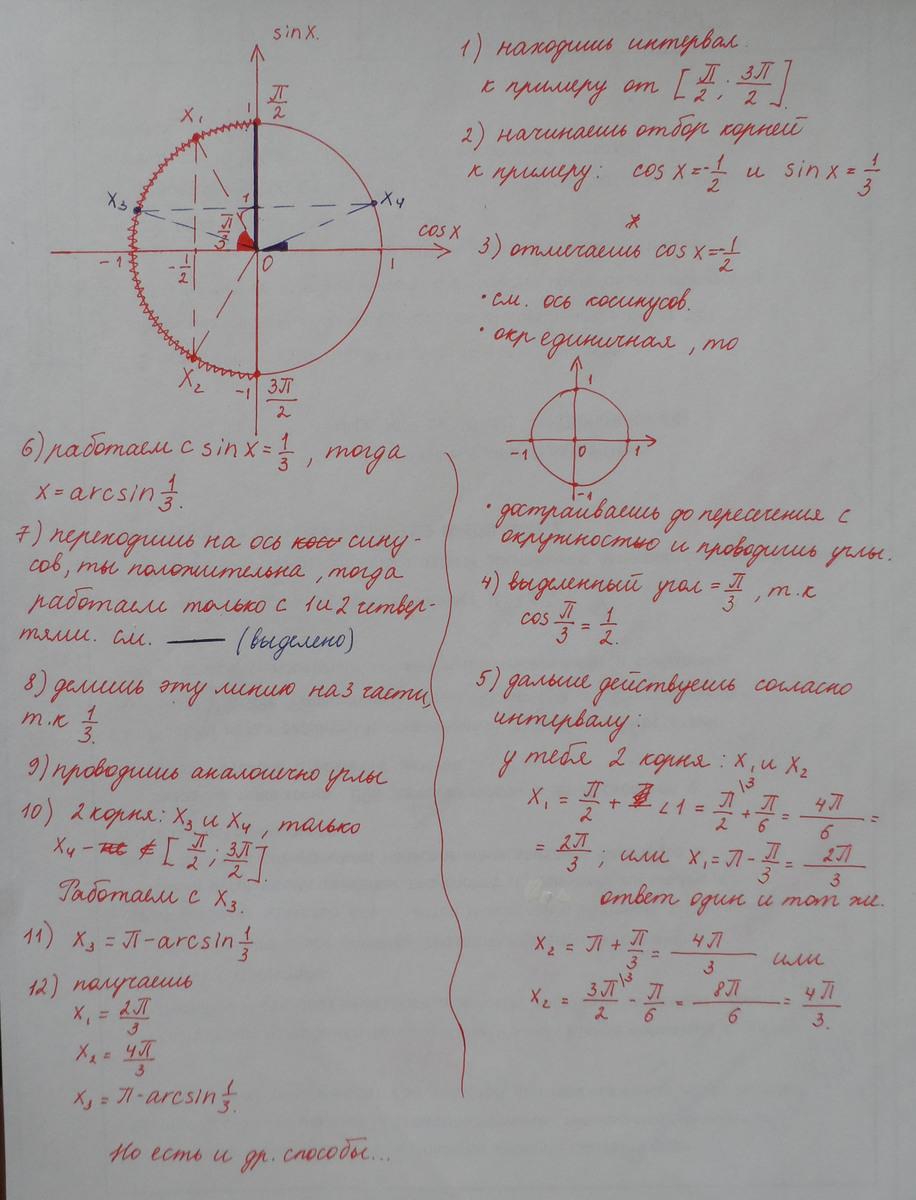 sin x.
1
π/2
x₁
x₃
1
x₄
π/3
cos x
-1
-1/2
0
1
x₂
-1
3π/2
1) находишь интервал.
к примеру от [π/2; 3π/2]
2) начинаешь отбор корней
к примеру: cos x = -1/2 и sin x = 1/3
3) отмечаешь cos x = -1/2
• см. ось косинусов.
• окр единичная, то
1
-1 0 1
-1
• достраиваешь до пересечения с
окружностью и проводишь углы.
4) выделенный угол = π/3, т.к
cos π/3 = 1/2.
5) дальше действуешь согласно
интервалу:
у тебя 2 корня: x₁ и x₂
x₁ = π/2 + ∠1 = π/2\3 + π/6 = 4π/6 =
= 2π/3; или x₁ = π - π/3 = 2π/3
ответ один и тот же.
x₂ = π + π/3 = 4π/3 или
x₂ = 3π/2\3 - π/6 = 8π/6 = 4π/3.
6) работаем с sin x = 1/3, тогда
x = arcsin 1/3.
7) переходишь на ось сину-
сов, ты положительна, тогда
работаем только с 1 и 2 четвер-
тями. см. — (выделено)
8) делишь эту линию на 3 части,
т.к 1/3.
9) проводишь аналогично углы
10) 2 корня: x₃ и x₄, только
x₄ - ∉ [π/2; 3π/2].
Работаем с x₃.
11) x₃ = π - arcsin 1/3
12) получаешь
x₁ = 2π/3
x₂ = 4π/3
x₃ = π - arcsin 1/3.
Но есть и др. способы...